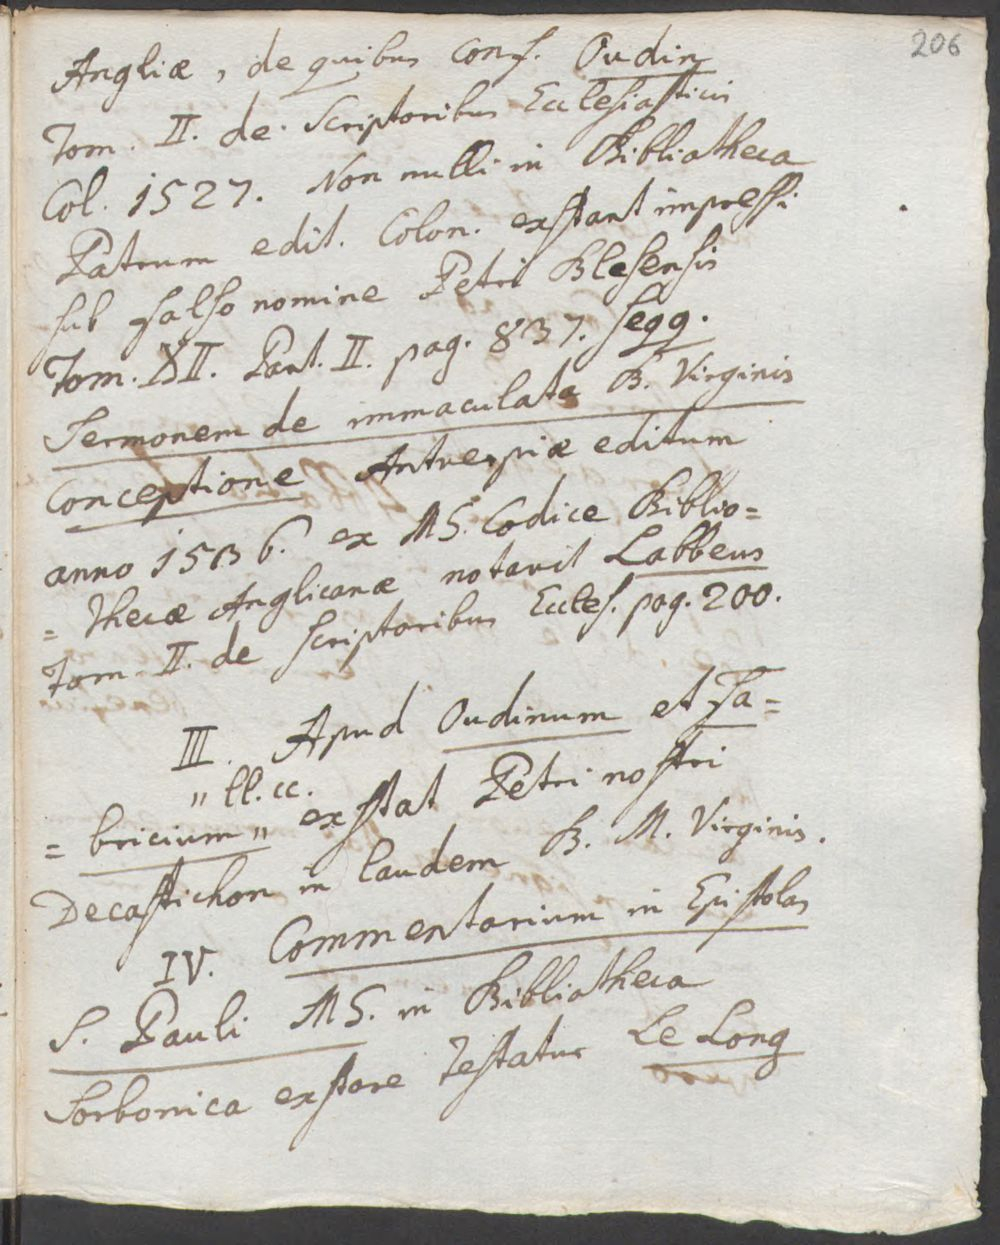 206
Angliæ, de quibus conf. Oudin
Tom. II. de Scriptoribus Ecclesiasticis
Col. 1527. Non nulli in Bibliotheca
Patrum edit. Colon. exstant impressi
sub falso nomine Petri Blesensis
Tom. XII. Part. II. pag. 837. seqq.
Sermonem de immaculata B. Virginis
Conceptione Antverpiæ editum
anno 1536. ex MS. Codice Biblio=
=thecæ Anglicanæ notavit Labbeus
Tom. II. de scriptoribus Eccles. pag. 200.
III. Apud Oudinum et Fa=
" ll. cc.
=bricium " exstat Petri nostri
Decastichon in laudem B. M. Virginis.
IV. Commentarium in Epistolas
S. Pauli MS. in Bibliotheca
Sorbonica exstare testatur Le Long